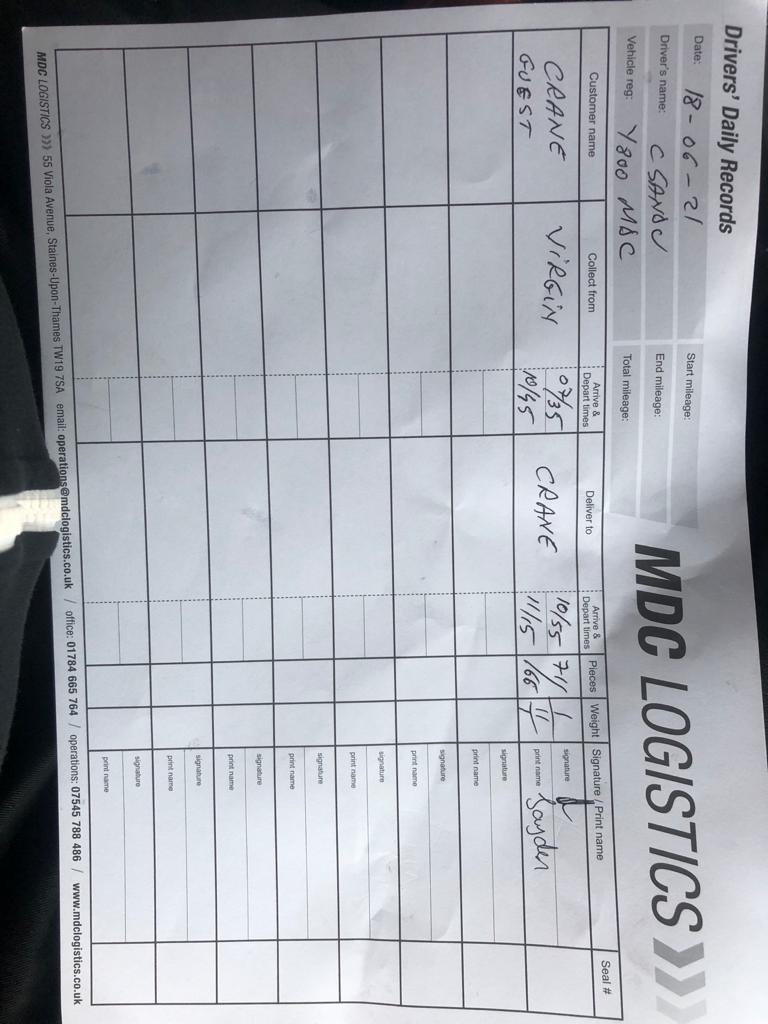 Drivers' Daily Records
MDC LOGISTICS
Date: 18-06-21
Start mileage:
Driver's name: C SANDU
End mileage:
Vehicle reg: Y800 MDC
Total mileage:
Customer name Collect from Arrive & Depart times Deliver to Arrive & Depart times Pieces Weight Signature / Print name Seal #
CRANE VIRGIN 07/35 CRANE 10/55 signature
GUEST 10/45 11/15 print name Jayden
signature
print name
signature
print name
signature
print name
signature
print name
signature
print name
signature
print name
signature
print name
MDC LOGISTICS >>> 55 Viola Avenue, Staines-Upon-Thames TW19 7SA email: operations@mdclogistics.co.uk / office: 01784 665 764 / operations: 07545 788 486 / www.mdclogistics.co.uk